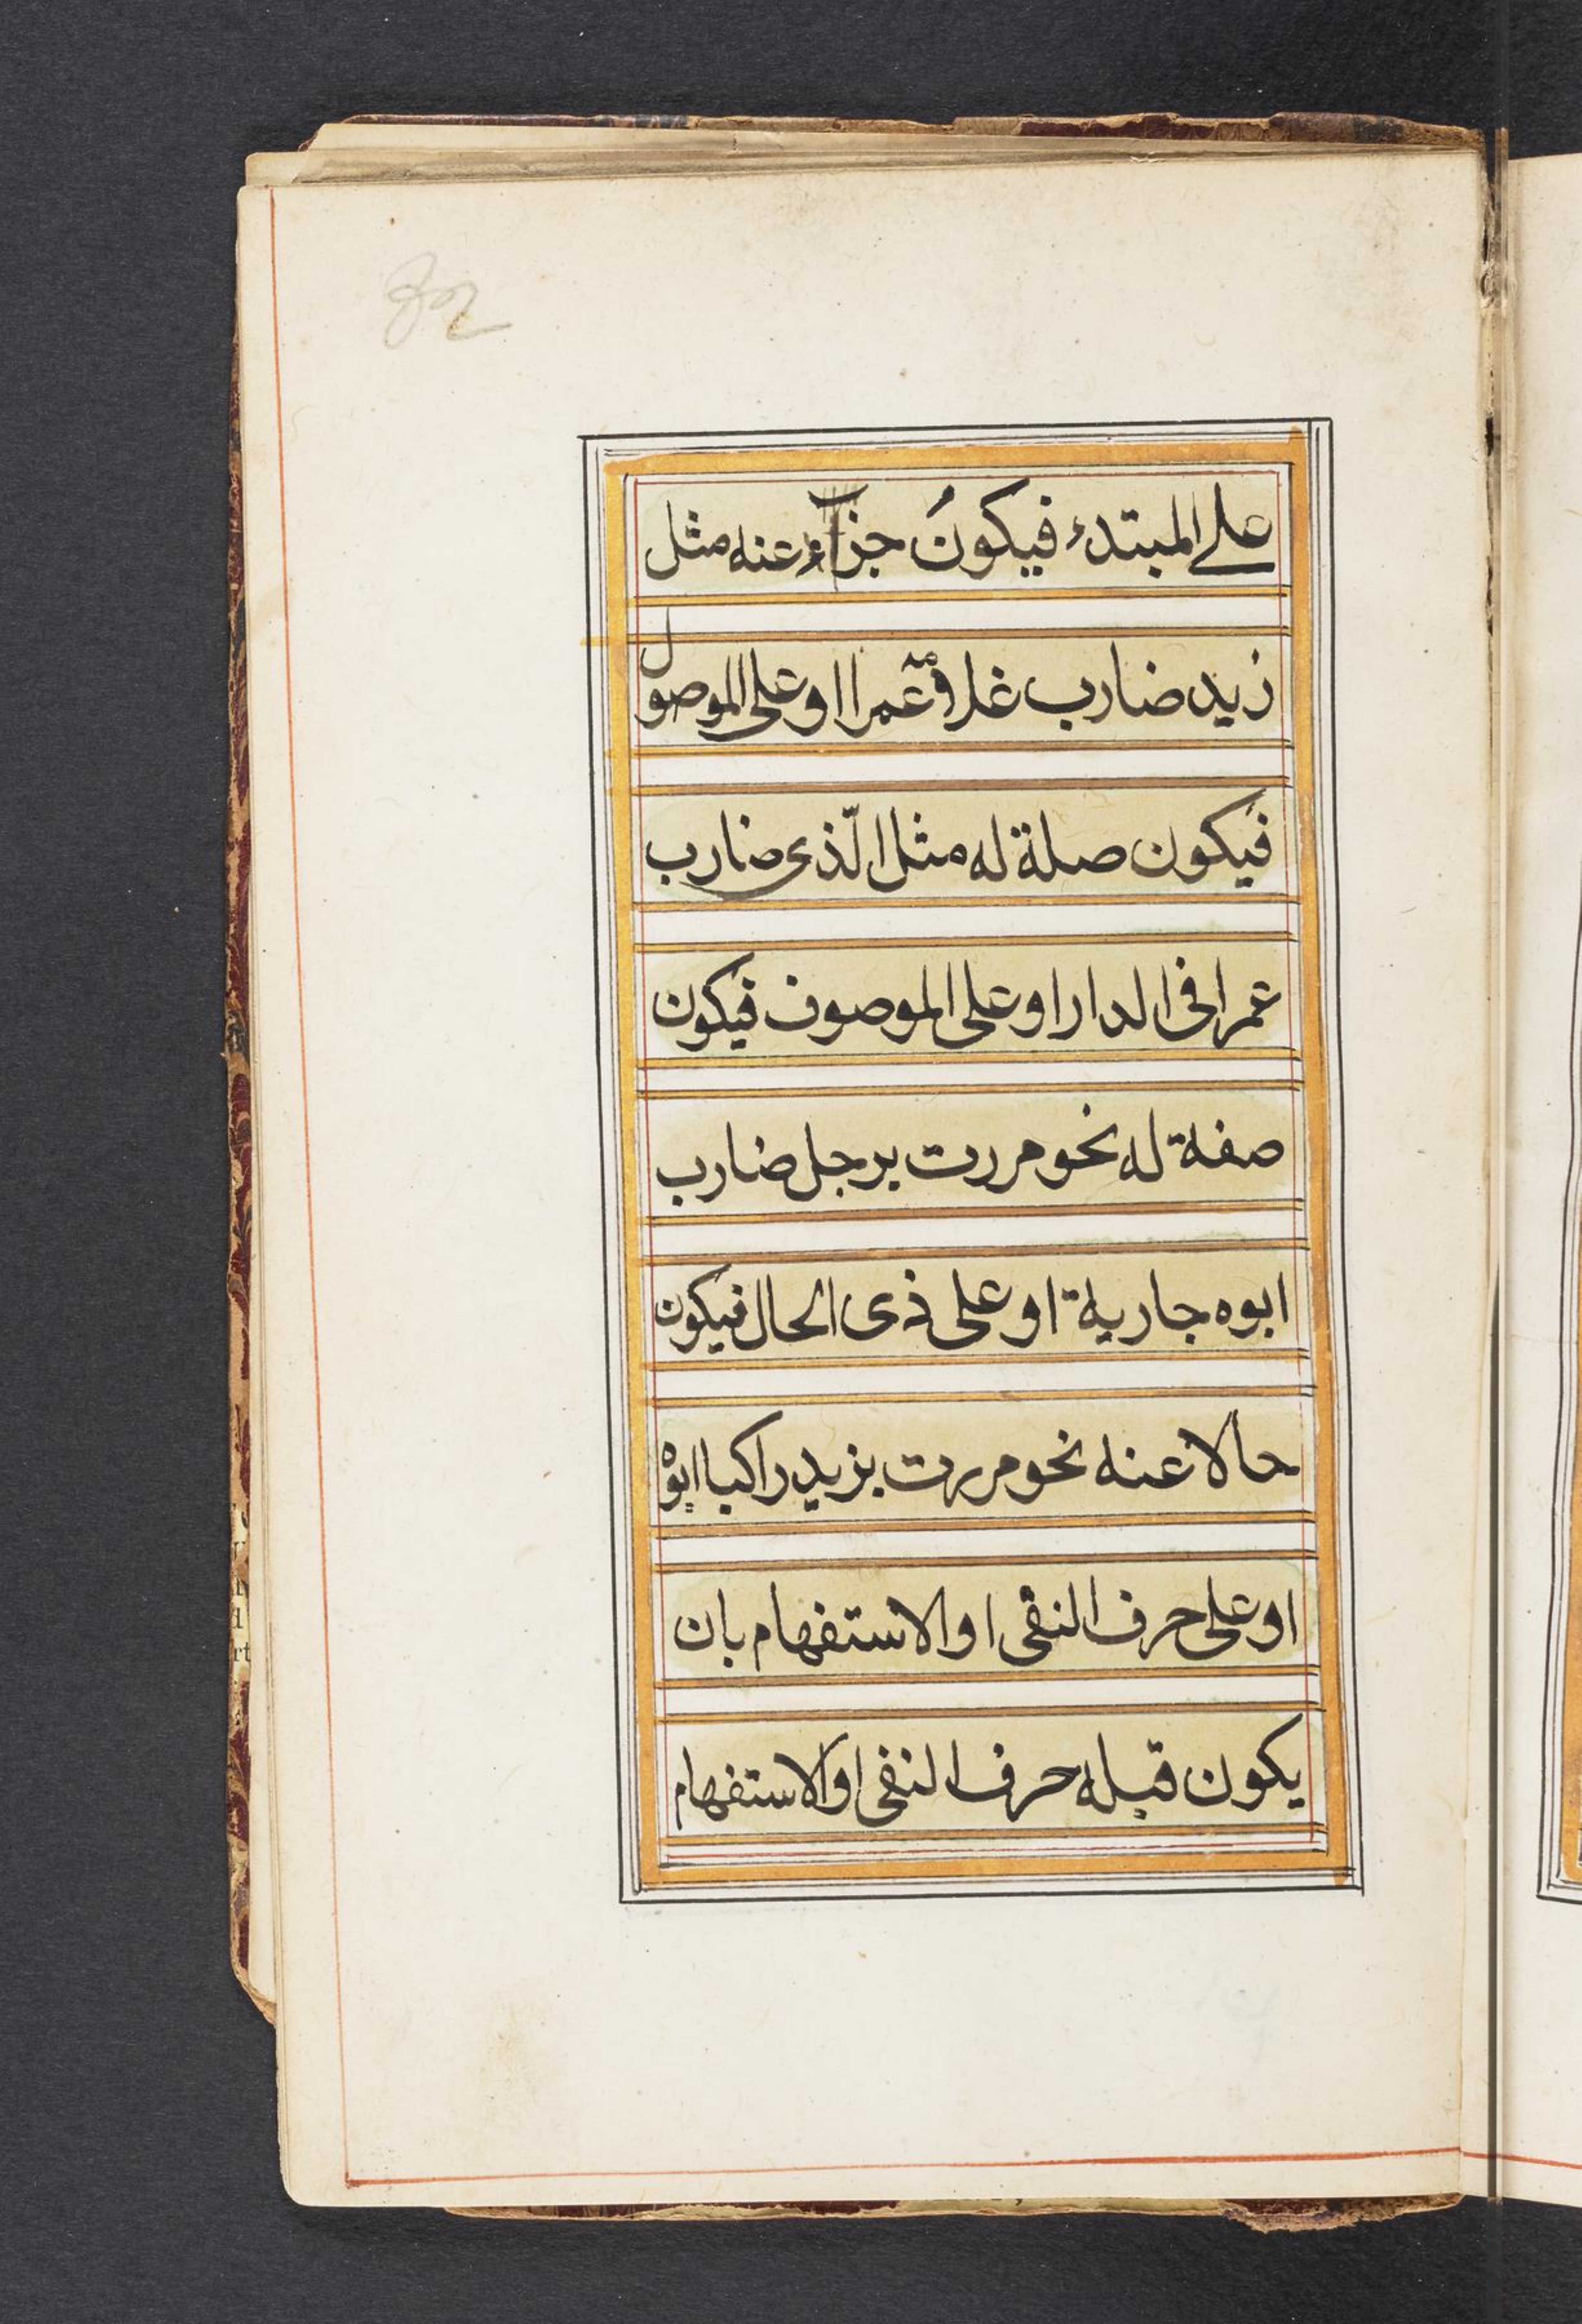 82
على المبتدء فيكونُ جزاء عنه مثل
زيد ضارب عمرا او على الموصول
فيكون صلة له مثل الّذى ضارب
عمرا فى الدار او على الموصوف فيكون
صفة له نحو مررت برجل ضارب
ابوه جارية او على ذى الحال فيكون
حالا عنه نحو مررت بزيد راكبا ابوه
او على حرف النفى او الاستفهام بان
يكون قبله حرف النفى او الاستفهام